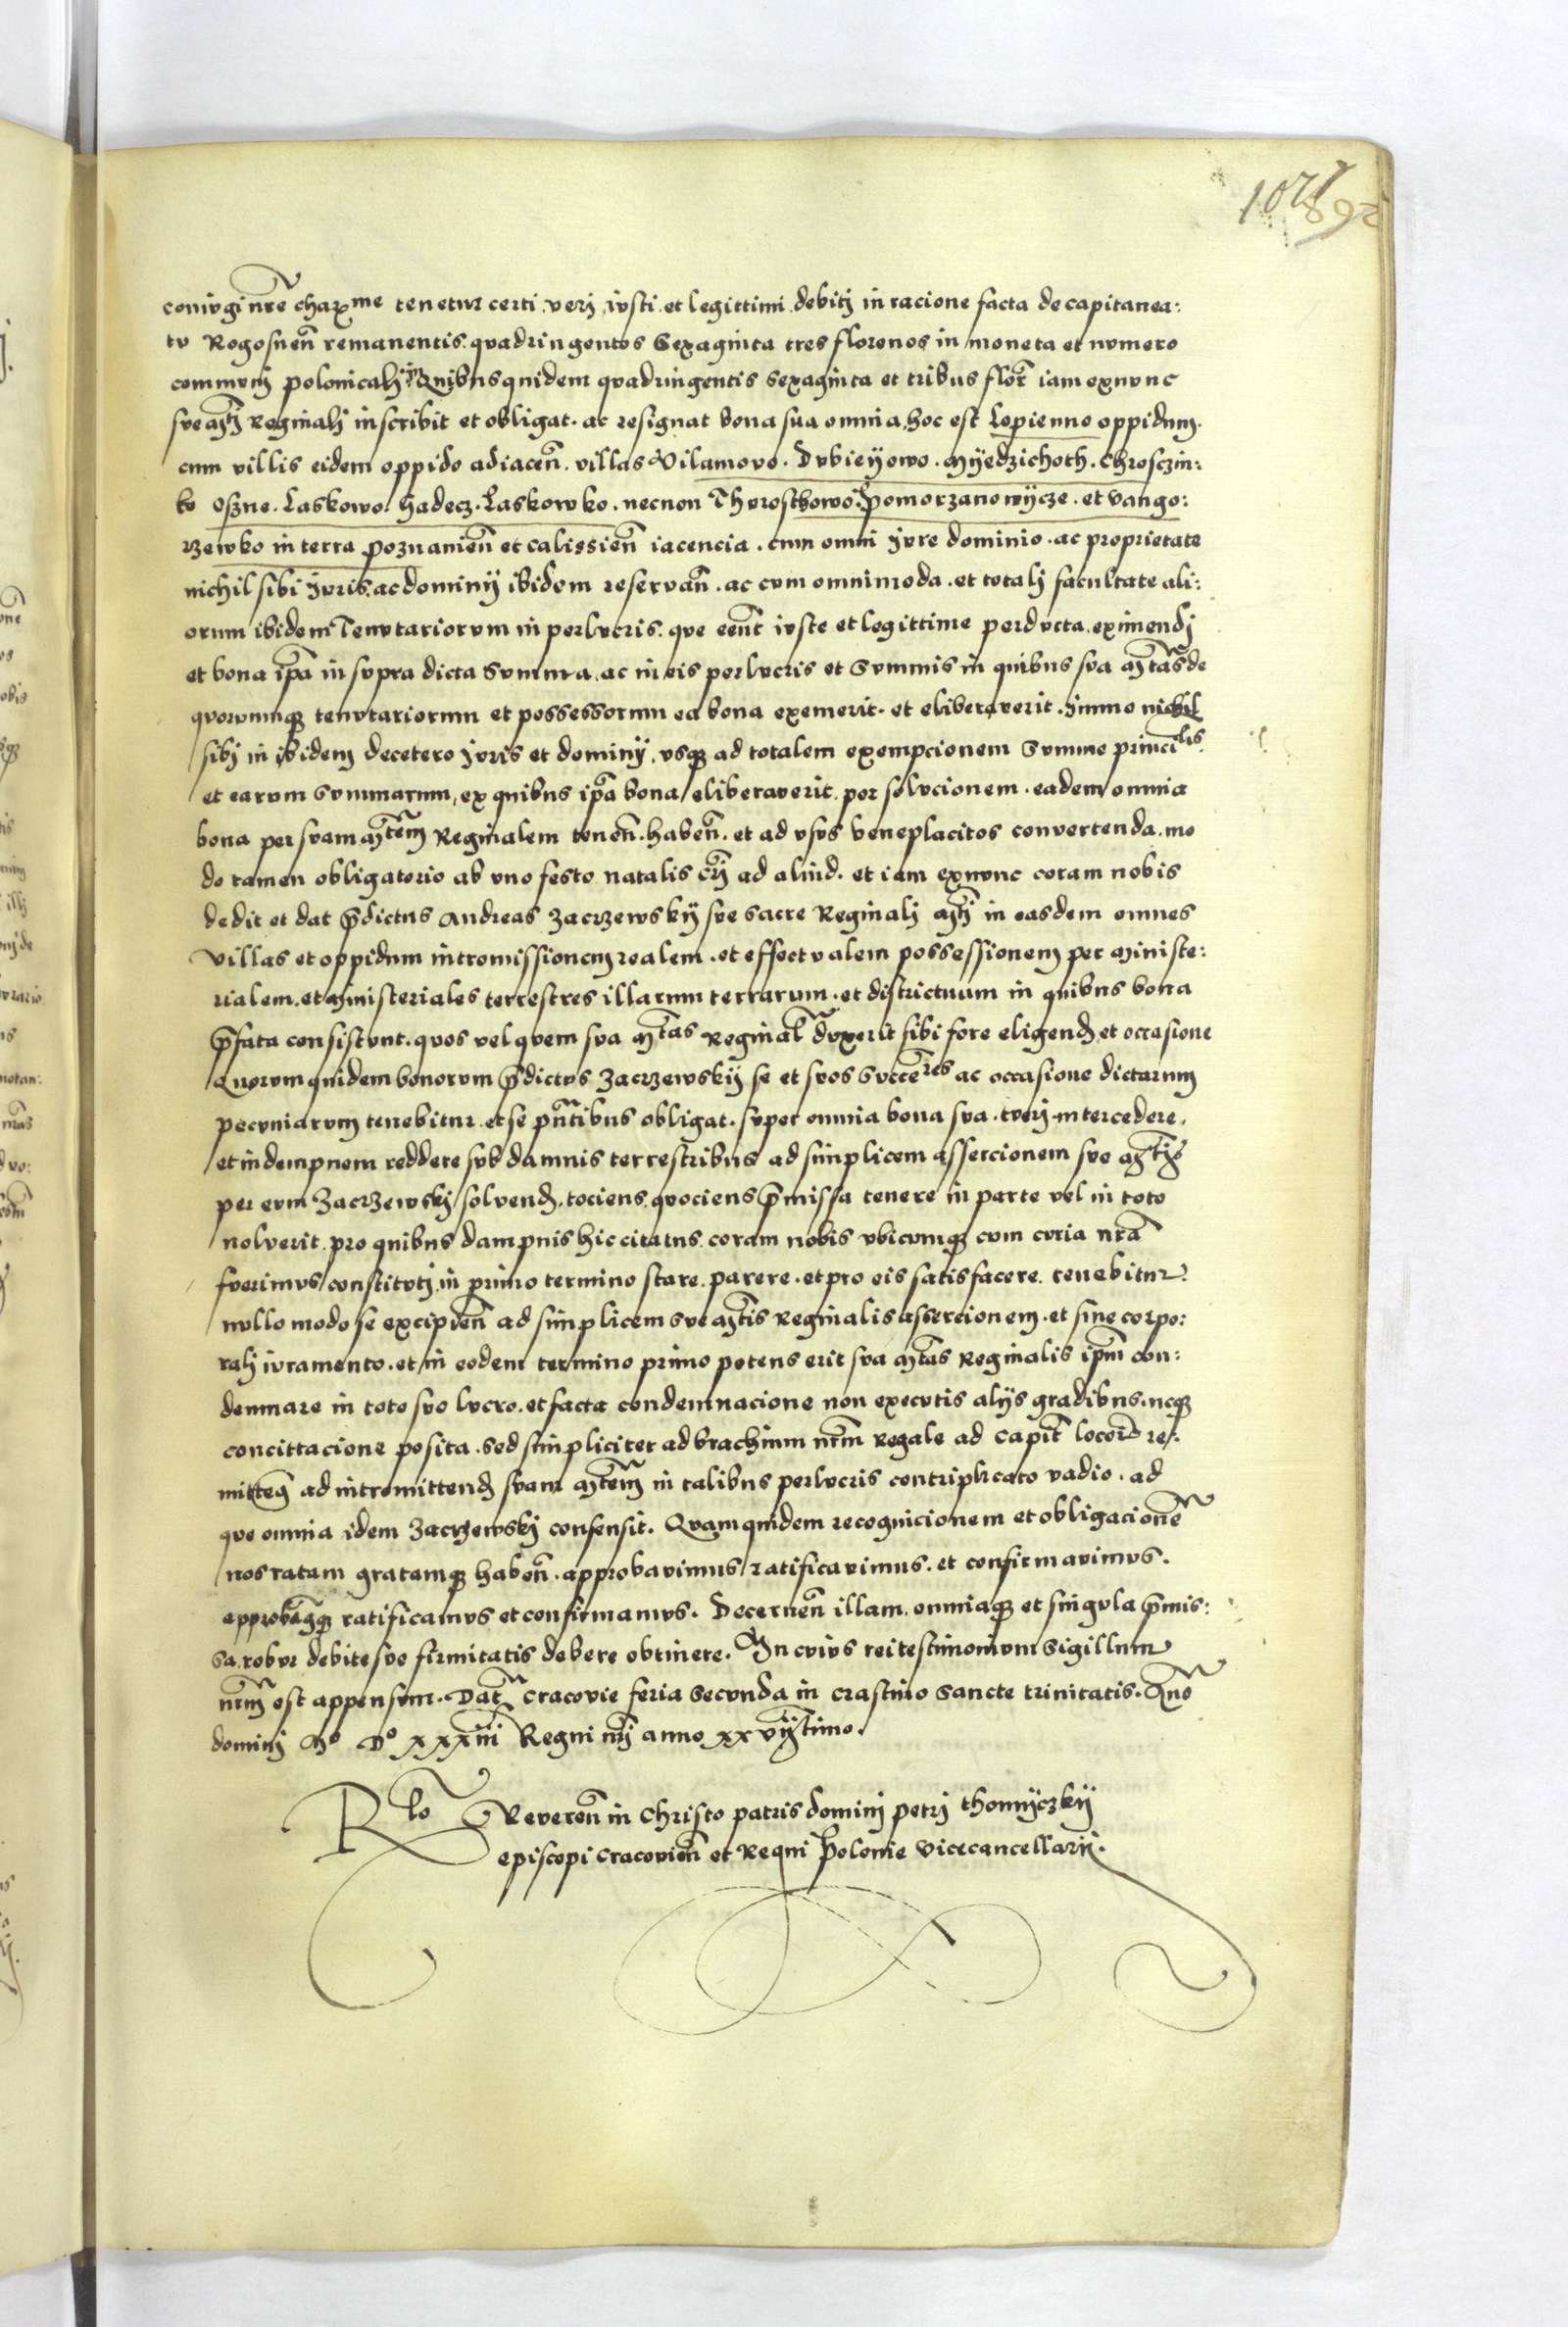 1021
892
coniugi nr̄e charme tenetur certi veri iusti et legittimi debiti in racione facta de capitanea:
tu Rogosnen̄ remanentis. quadringentos Sexaginta tres florenos in moneta et numero
communi polonicali. Quibus quidem quadringentis sexaginta et tribus flor̄ iam exnunc
sue M̄ti Reginali inscribit et obligat. ac resignat bona sua omnia, hoc est Lopienno oppidum.
cum villis eidem oppido adiacen̄. villas Vilamovo. Dubieyowo. Myedzichoth. Chrosczin:
ko Oszne. Laskowo. Hadecz. Laskowko. necnon Thurostowo. Pomorzanowycze. et Vango:
rzewko in terra Poznanien̄ et Calissien̄ iacencia. cum omni Jure dominio. ac proprietate
nichil sibi Juris. ac dominy ibidem reservan̄. ac cum omnimoda. et totali facultate ali:
orum ibidem Tenutariorum in perlucris. que eēnt iuste et legittime perducta. eximendi
et bona ip̄a in supra dicta Summa, ac in eis perlucris et Summis in quibus sua M̄tas de
quorumq tenutariorum et possessorum ea bona exemerit. et eliberaverit. Immo nichil
sibi in ibidem decetero Juris et dominy. usq ad totalem exempcionem Summe principlis
et earum Summarum, ex quibus ip̄a bona eliberaverit. per solucionem. eadem omnia
bona per suam M̄tem Reginalem tenen̄. haben̄. et ad usus beneplacitos convertenda. mo
do tamen obligatorio ab uno festo natalis Cr̄i ad aliud. et iam exnunc coram nobis
dedit et dat p̄dictus Andreas Zacrzewsky sue sacre Reginali M̄ti in easdem omnes
villas et oppidum intromissionem realem. et effectualem possessionem per Ministe:
rialem. et Ministeriales terrestres illarum terrarum. et districtuum in quibus bona
p̄fata consistunt. quos vel quem sua M̄tas Reginal̄ duxerit sibi fore eligend̄ et occasione
Quorum quidem bonorum p̄dictus Zacrzewsky se et suos Succēres ac occasione dictarum
pecuniarum tenebitur. et se pn̄tibus obligat. super omnia bona sua. tueri intercedere.
et indempnem reddere sub damnis terrestribus ad simplicem assercionem sue M̄tis
per eum Zacrzewski solvend̄. tociens quociens p̄missa tenere in parte vel in toto
noluerit. pro quibus dampnis hic citatus. coram nobis ubicumq cum curia nr̄a
fuerimus constituti. in primo termino stare. parere. et pro eis satisfacere. tenebitur
nullo modo se excipien̄ ad simplicem sue M̄tis Reginalis assercionem. et sine corpo:
rali iuramento. et in eodem termino primo potens erit sua M̄tas Reginalis ip̄m con:
demnare in toto suo lucro. et facta condemnacione non executis alys gradibus. neq
concittacione posita. sed simpliciter ad brachium nr̄m Regale ad Capit̄ locor̄ re:
mitten̄ ad intromittend̄ suam M̄tem in talibus perlucris cum triplicato vadio. ad
que omnia idem Zacrzewski consensit. Quam quidem recognicionem et obligacionē
nos ratam gratamq haben̄. approbavimus ratificavimus. et confirmavimus.
approbamq ratificamus et confirmamus. Decernen̄ illam. omniaq et singula p̄mis:
sa. robur debite sue firmitatis debere obtinere. In cuius rei testimonium Sigillum
nr̄m est appensum. Dat̄ Cracovie feria Secunda in crastino Sancte trinitatis. Anno
domini Mo Do xxxiii Regni nr̄i anno xxvytimo.
Rlo Reveren̄ in Christo patris domini petri Thomyczky
episcopi Cracovien̄ et Regni Polonie Vicecancellarii.